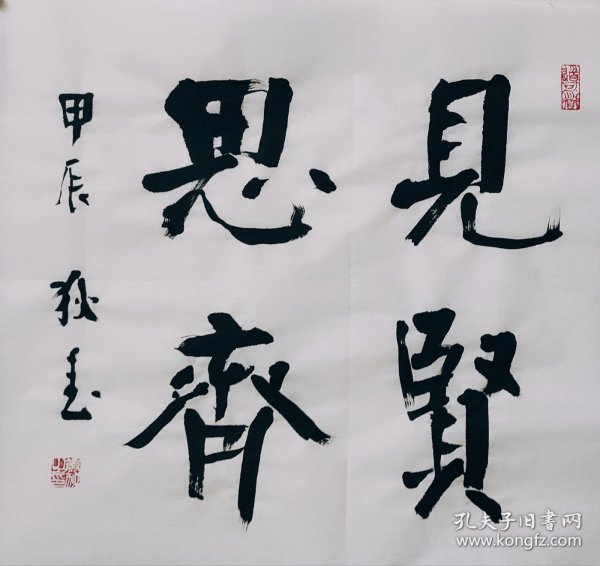 見賢
思齊
甲辰
孔夫子旧书网
www.kongfz.com